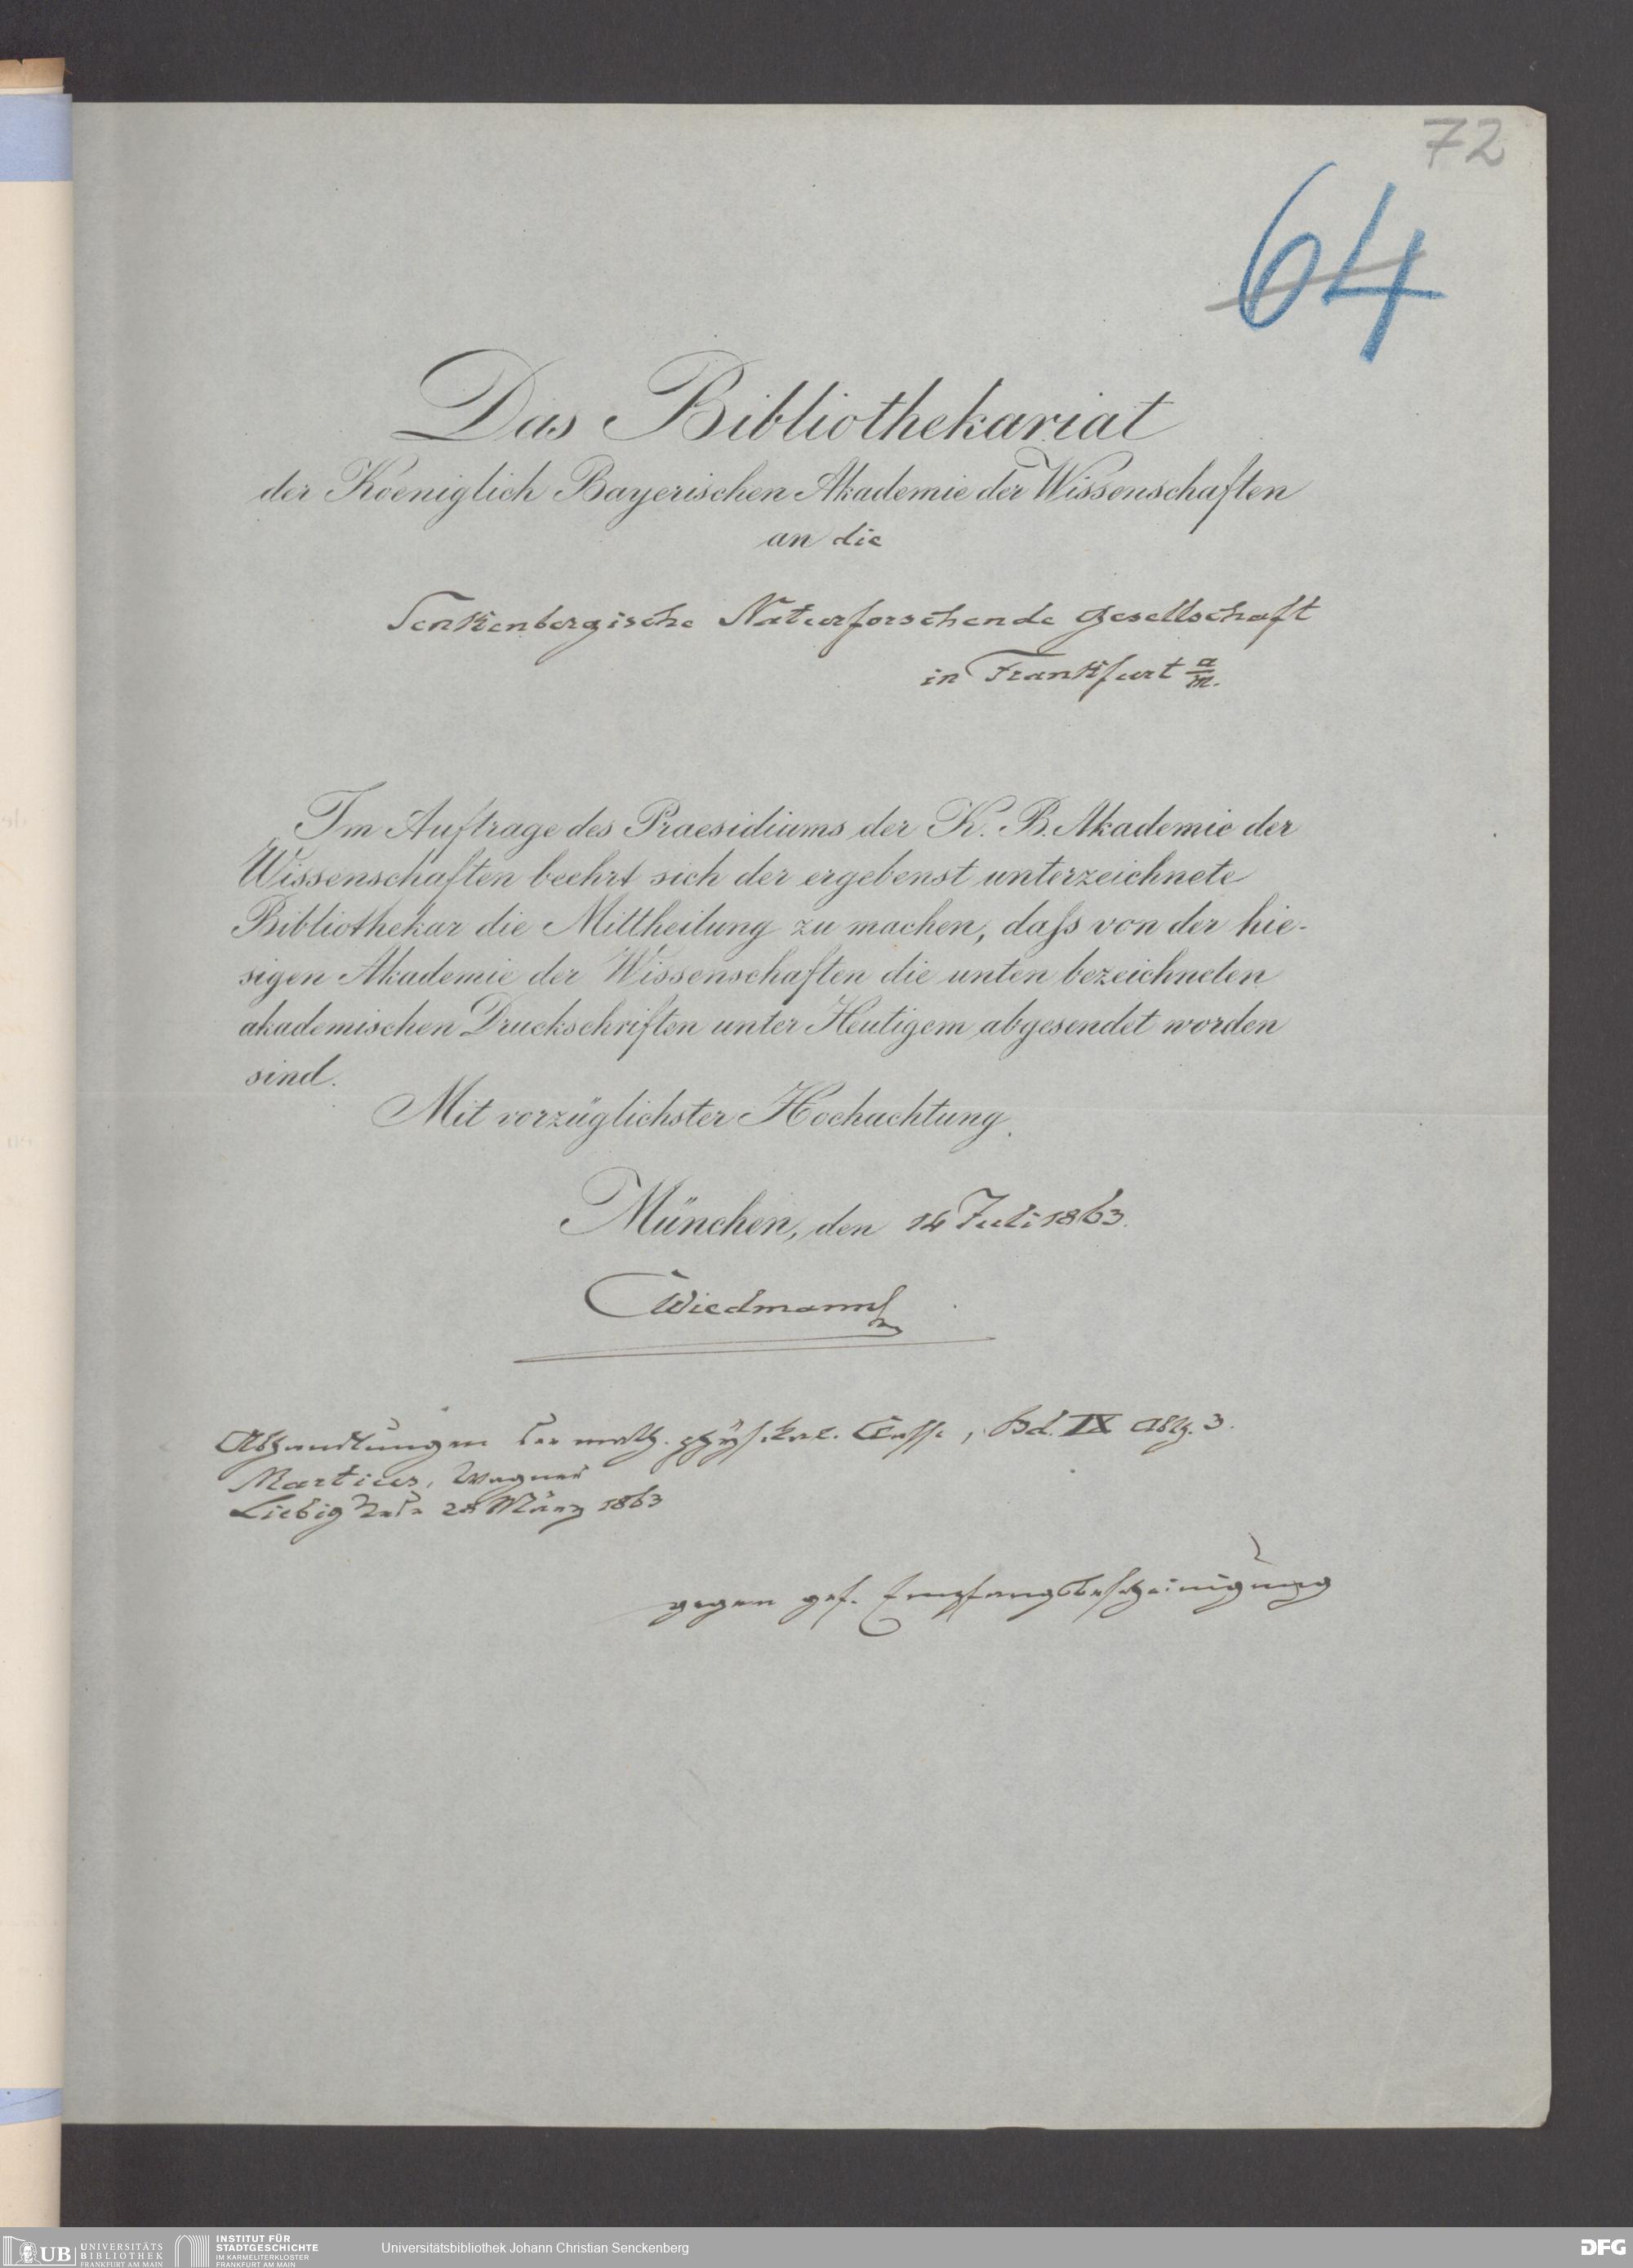 72
64
Das Bibliothekariat
der Koeniglich Bayerischen Akademie der Wissenschaften
an die
Senkenbergische Naturforschende Gesellschaft
in Frankfurt a/m.
Im Auftrage des Praesidiums der K. B. Akademie der
Wissenschaften beehrt sich der ergebenst unterzeichnete
Bibliothekar die Mittheilung zu machen, daſs von der hie-
sigen Akademie der Wissenschaften die unten bezeichneten
akademischen Druckschriften unter Heutigem abgesendet worden
sind.
Mit vorzüglichster Hochachtung.
München, den 14 Juli 1863.
Wiedmann
Abhandlungen der math. physikal. Classe, Bd. IX Abth. 3.
Martius, Wagner
Liebig Rede 28 März 1863
gegen gef. Empfangsbescheinigung
UB UNIVERSITÄTS
BIBLIOTHEK
FRANKFURT AM MAIN
INSTITUT FÜR
STADTGESCHICHTE
IM KARMELITERKLOSTER
FRANKFURT AM MAIN
Universitätsbibliothek Johann Christian Senckenberg
DFG